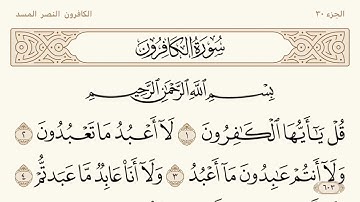 الجزء ٣٠
الكافرون النصر المسد
سُورَةُ الكَافِرُونَ
بِسْمِ اللَّهِ الرَّحْمَٰنِ الرَّحِيمِ
قُلْ يَٰٓأَيُّهَا ٱلْكَٰفِرُونَ ١ لَآ أَعْبُدُ مَا تَعْبُدُونَ ٢
وَلَآ أَنتُمْ عَٰبِدُونَ مَآ أَعْبُدُ ٣ وَلَآ أَنَا۠ عَابِدٌ مَّا عَبَدتُّمْ ٤
٦٠٣